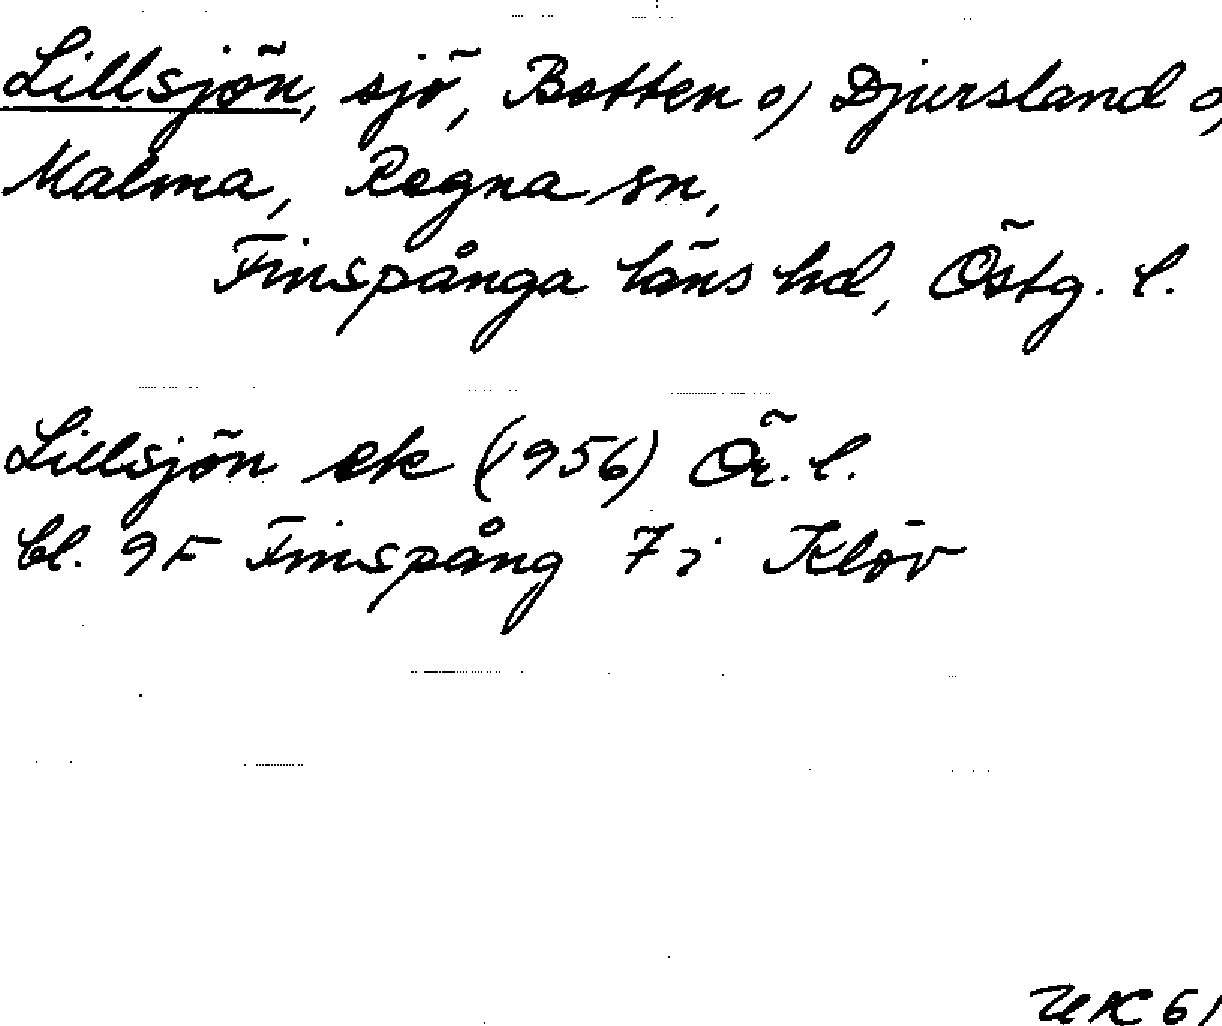 Lillsjön, sjö, Botten o, Djursland o,
Malma, Regna sn,
Finspånga läns hd, Östg. l.
Lillsjön ek (1956) Ör. l.
bl. 9F Finspång 7 i Klöv
UK 61